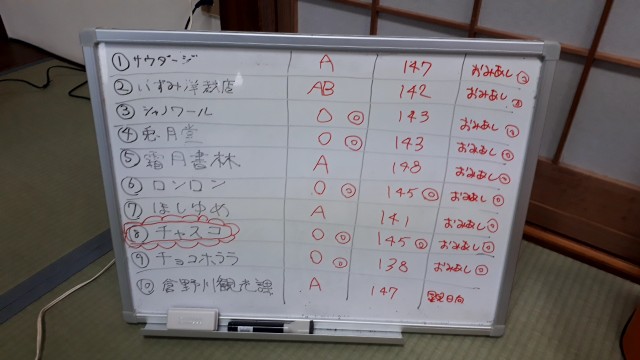 ① サウダージ A 147 おみあし◎
② いずみ洋裁店 AB 142 おみあし◎
③ シャノワール O ◎ 143 おみあし◎
④ 兎月堂 O ◎ 143 おみあし◎
⑤ 霜月書林 A 148 おみあし◎
⑥ ロンロン O ◎ 145 ◎ おみあし◎
⑦ ほしゆめ A 141 おみあし◎
⑧ チャスコ O ◎ 145 ◎ おみあし◎
⑨ チョコホララ O ◎ 138 おみあし◎
⑩ 倉野川観光課 A 147 日向